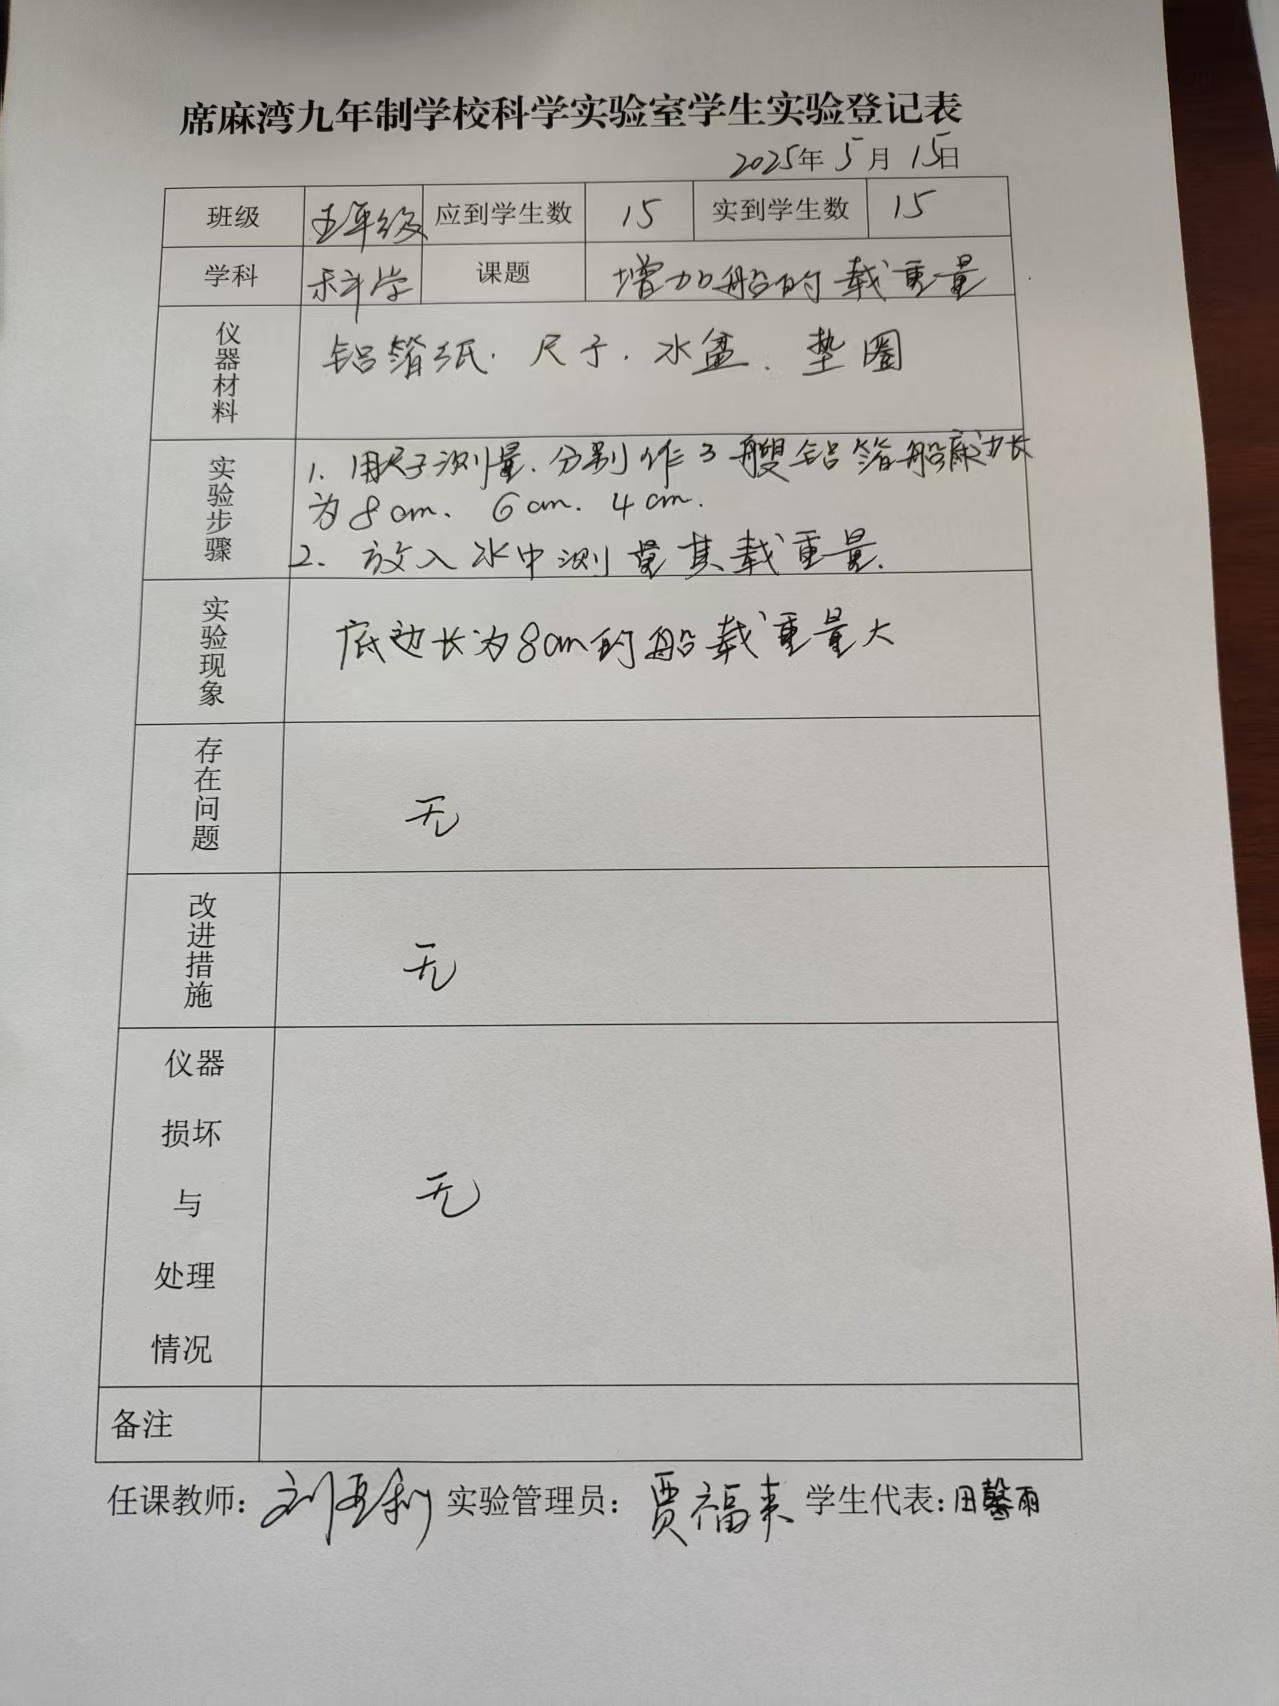 席麻湾九年制学校科学实验室学生实验登记表
2025年5月15日
班级 五年级 应到学生数 15 实到学生数 15
学科 科学 课题 增加船的载重量
仪器材料 铝箔纸、尺子、水盆、垫圈
实验步骤
1. 用尺子测量、分别作3艘铝箔船底边长
为8cm、6cm、4cm.
2. 放入水中测量其载重量.
实验现象 底边长为8cm的船载重量大
存在问题 无
改进措施 无
仪器
损坏
与
处理
情况
无
备注
任课教师：刘亚利 实验管理员：贾福来 学生代表：田馨雨